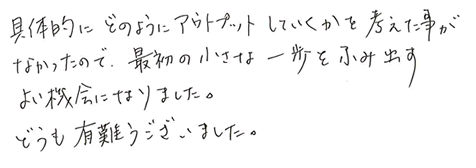 具体的に どのようにアウトプットしていくかを考えた事が
なかったので、最初の小さな一歩をふみ出す
よい機会になりました。
どうも有難うございました。